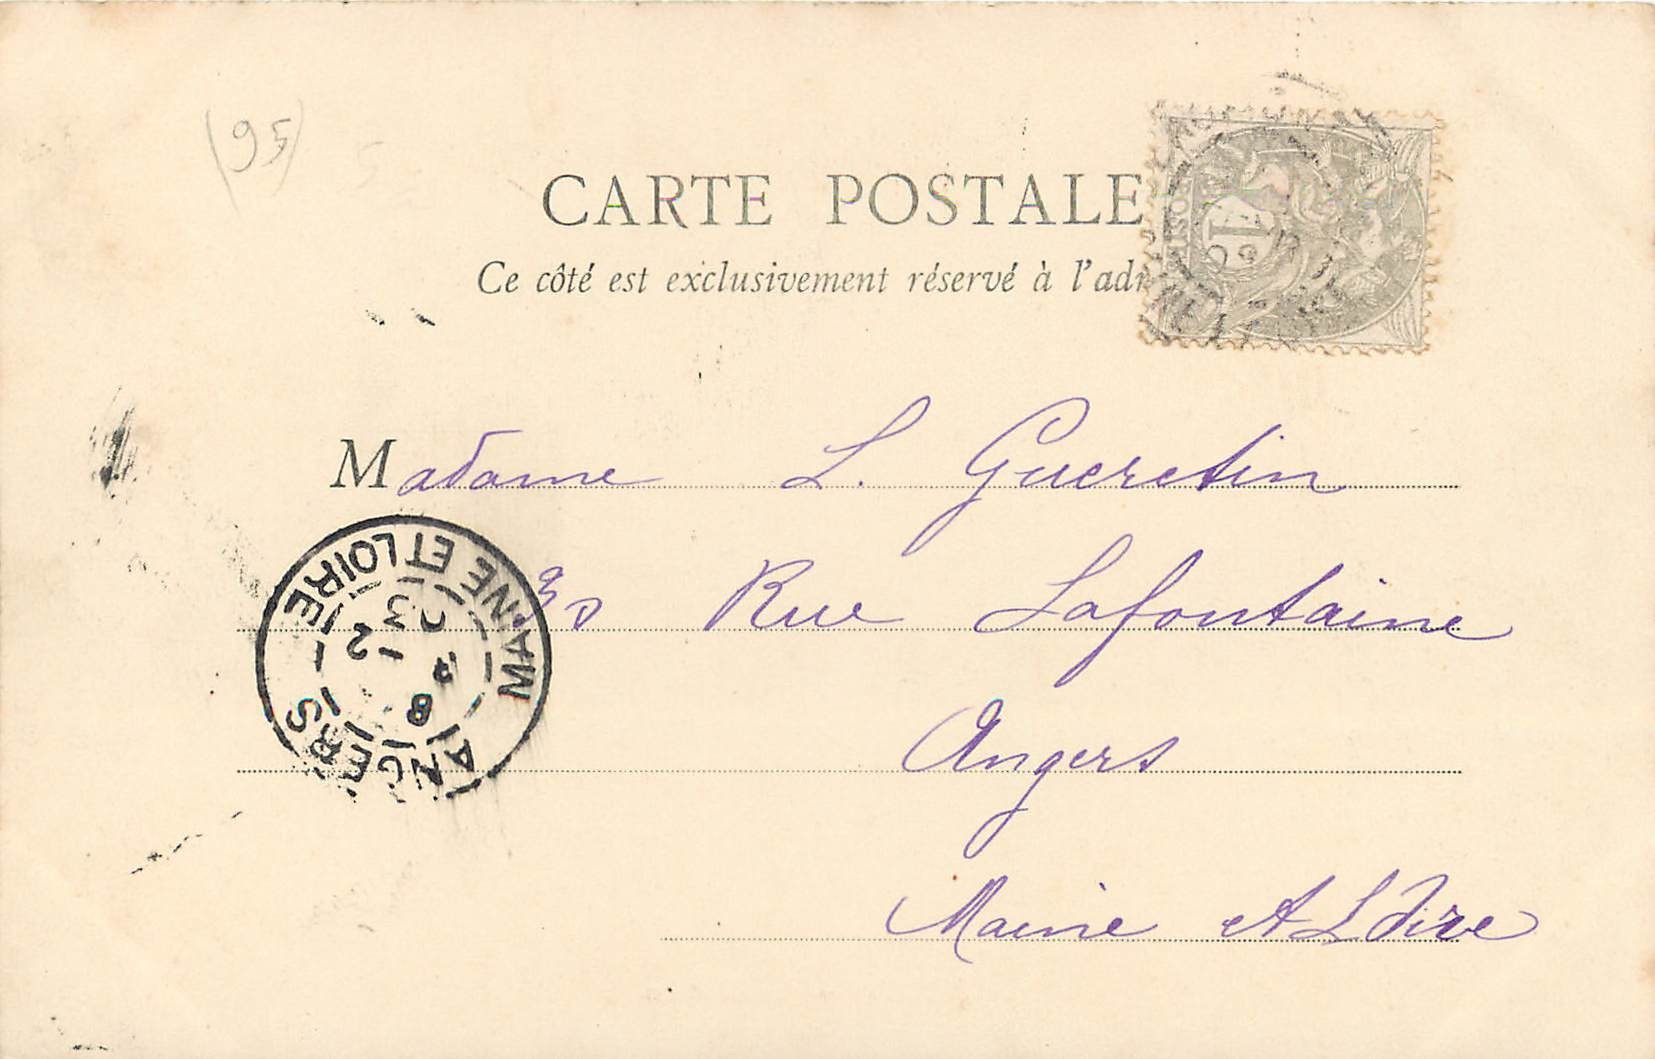 (95)
CARTE POSTALE
Ce côté est exclusivement réservé à l'adr
Madame L. Gueretin
Rue Lafontaine
Angers
Maine et Loire
ANGERS
MAINE ET LOIRE
8
2
03
1